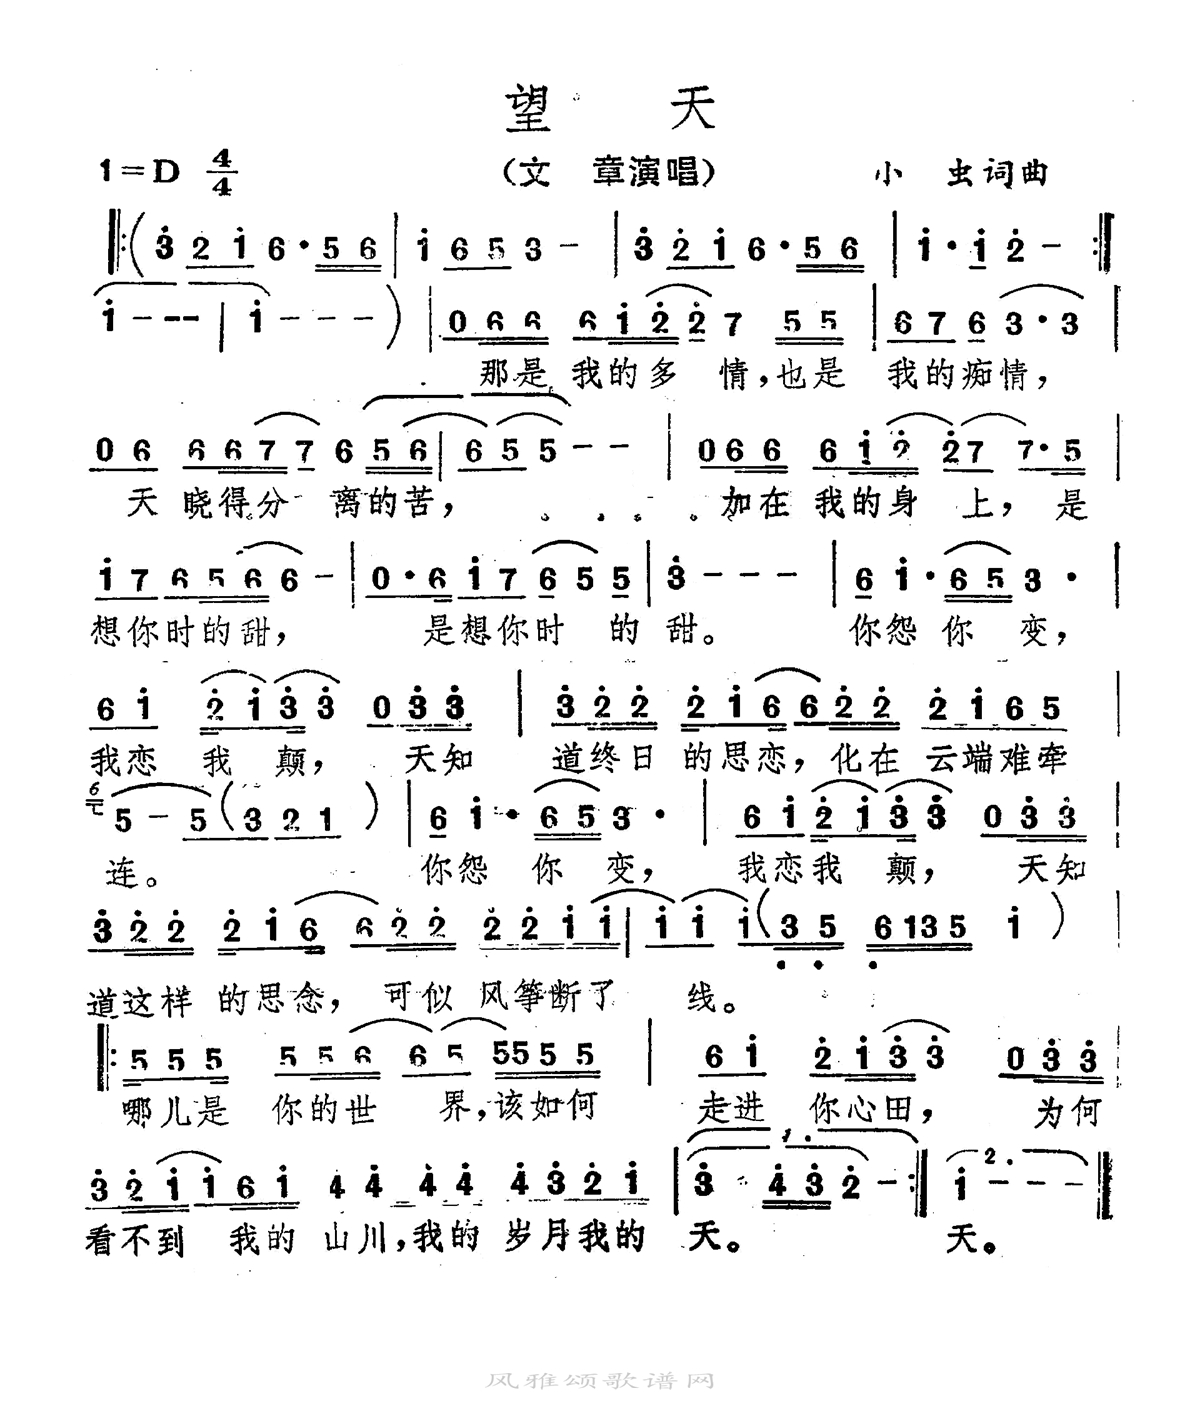 望 天
1=D 4/4 (文 章演唱) 小 虫词曲
3 2 1 6·5 6 | 1 6 5 3 - | 3 2 1 6·5 6 | 1·1 2 -
1 - - - | 1 - - - ) | 0 6 6 6 1 2 2 7 5 5 | 6 7 6 3·3 |
那是 我的多 情,也是 我的痴情,
0 6 6 6 7 7 6 5 6 | 6 5 5 - - | 0 6 6 6 1 2 2 7 7·5 |
天 晓得分 离的苦, 加在 我的身 上, 是
1 7 6 5 6 6 - | 0·6 1 7 6 5 5 | 3 - - - | 6 1·6 5 3· |
想你时的甜, 是想你时 的 甜。 你怨 你 变,
6 1 2 1 3 3 0 3 3 | 3 2 2 2 1 6 6 2 2 2 1 6 5 |
我恋 我 颠, 天知 道终日 的思恋, 化在 云端难牵
6 5 - 5 ( 3 2 1 ) | 6 1·6 5 3· | 6 1 2 1 3 3 0 3 3 |
连。 你怨 你 变, 我恋我 颠, 天知
3 2 2 2 1 6 6 2 2 2 2 1 1 | 1 1 1 ( 3 5 6 1 3 5 1 ) |
道这样 的思念, 可似 风筝断了 线。
5 5 5 5 5 6 6 5 5 5 5 5 | 6 1 2 1 3 3 0 3 3 |
哪儿是 你的世 界,该如何 走进 你心田, 为何
1. 2.
3 2 1 1 6 1 4 4 4 4 4 3 2 1 | 3 4 3 2 - 1 - - -
看不到 我的 山川,我的 岁月我的 天。 天。
风雅颂歌谱网